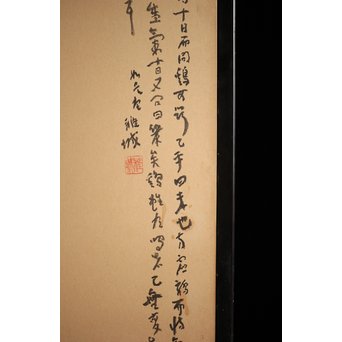 十日而問鷄可鬥已乎曰未也方虛驕而恃
盛氣十日又問曰幾矣鷄雖有鳴者已無變
雅城